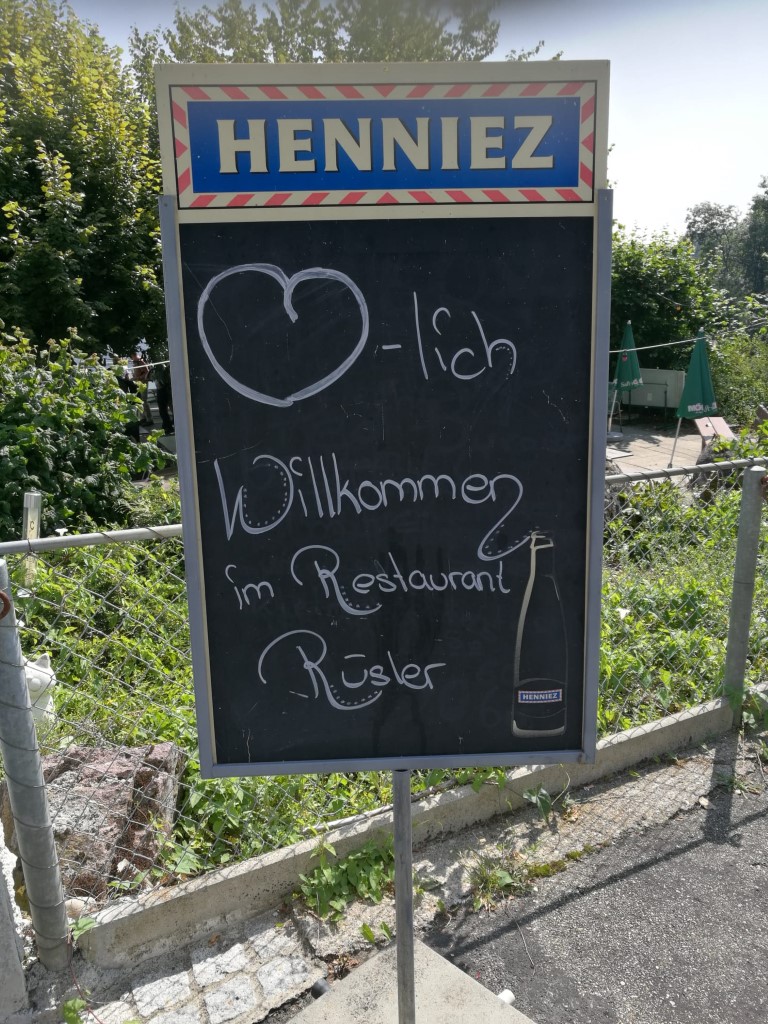 HENNIEZ
♥-lich
Willkommen
im Restaurant
Rüsler
HENNIEZ